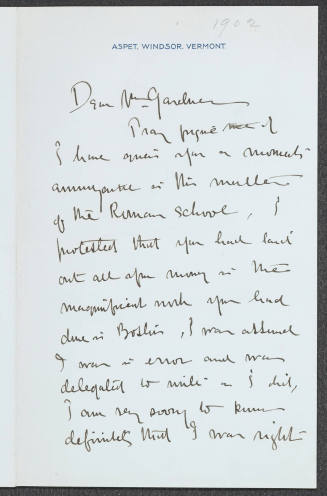 1902
ASPET, WINDSOR, VERMONT.
Dear Mrs Gardner
Pray forgive me if
I have given you a moments
annoyance in this matter
of the Roman School, I
protested that you had laid
out all your money in the
magnificent work you had
done in Boston, I was assured
I was in error and was
delegated to write as I did,
I am very sorry to know
definitely that I was right